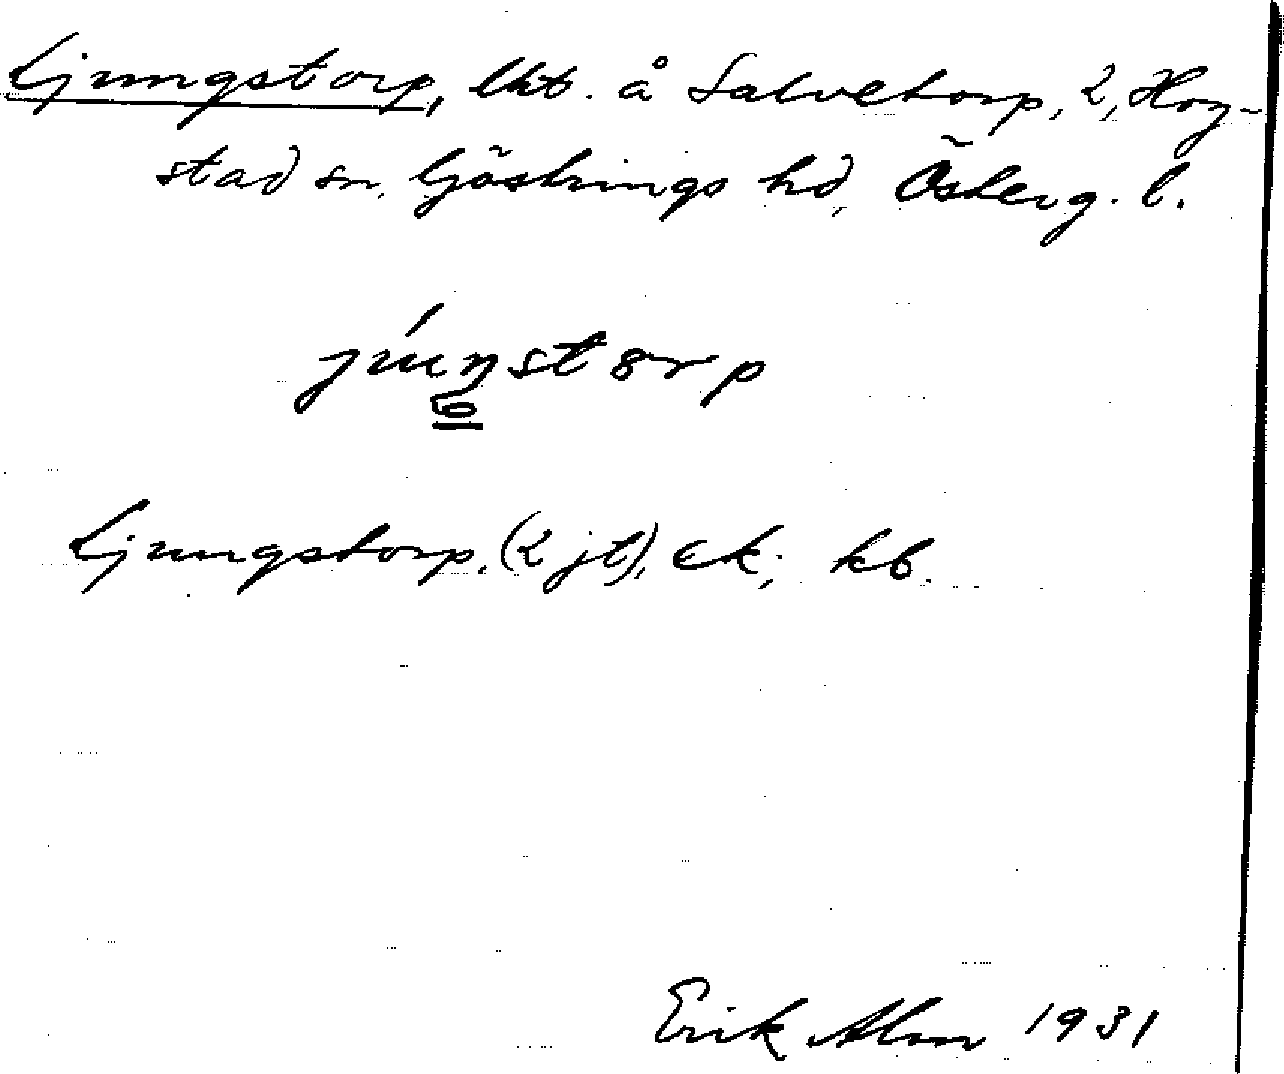 Ljungstorp, lht. å Salvetorp, 2, Hog-
stad sn, Göstrings hd, Österg. l.
júŋstorp
Ljungstorp, (2 jt), ek; kb.
Erik Alm 1931